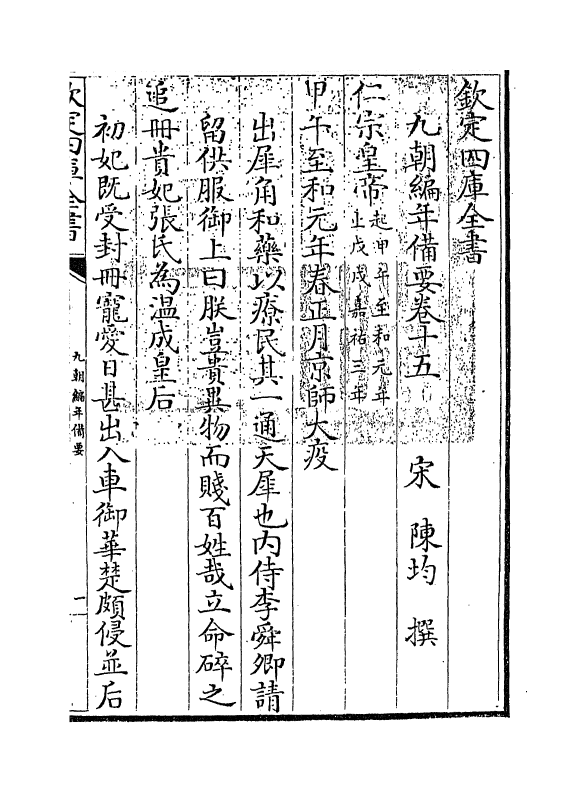 欽定四庫全書
九朝編年備要卷十五　宋　陳均　撰
仁宗皇帝起甲午至和元年
止戊戌嘉祐三年
甲午至和元年春正月京師大疫
出犀角和藥以療民其一通天犀也内侍李舜卿請
留供服御上曰朕豈貴異物而賤百姓哉立命碎之
追冊貴妃張氏為溫成皇后
初妃既受封冊寵愛日甚出入車御華楚頗侵並后
欽定四庫全書
九朝編年備要
一